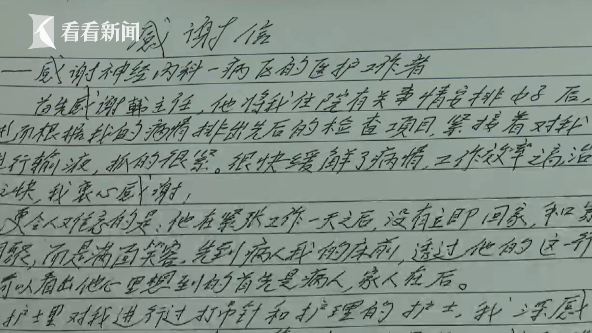 看看新闻
感谢信
——感谢神经内科一病区的医护工作者
首先感谢韩主任,他将我住院有关事情安排好后,
而根据我的病情排出先后的检查项目,紧接着对我
行输液,抓的很紧。很快缓解了病情,工作效率之高,治
之快,我衷心感谢,
更令人难忘的是:他在紧张工作一天之后,没有立即回家,和
而是满面笑容,先到病人我的床前,透过他的这一行
可以看出他心里想到的首先是病人,家人在后。
护士里对我进行过打吊针和护理的护士,我深感